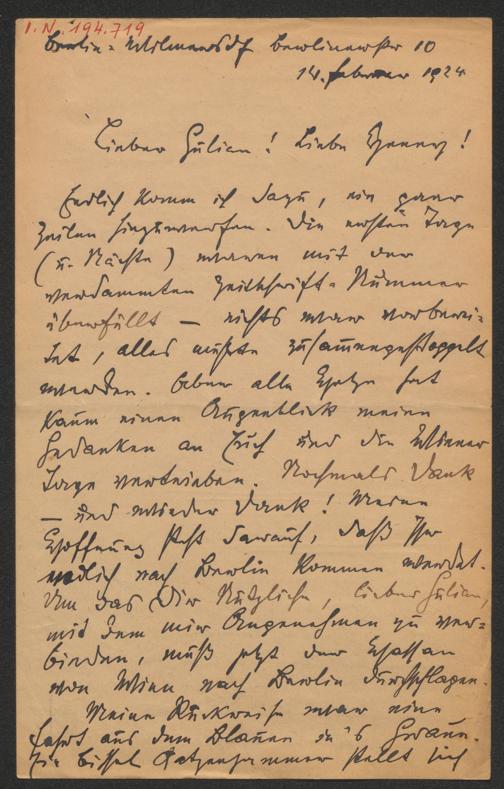 I.N. 194.719
Berlin-Wilmersdf Berlinerstr 10
14. Februar 1924
Lieber Julian! Liebe Henny!
Endlich komm ich dazu, ein paar
Zeilen hinzuwerfen. Die ersten Tage
(u. Nächte) waren mit der
verdammten Zeitschrift-Nummer
überfüllt – nichts war vorberei-
tet, alles mußte zusammengestoppelt
werden. Aber alle Hetze hat
kaum einen Augenblick meine
Gedanken an Euch und die Wiener
Tage vertrieben. Nochmals Dank
– und wieder Dank! Meine
Hoffnung steht darauf, daß Ihr
endlich nach Berlin kommen werdet.
Um das Dir Nützliche, lieber Julian,
mit dem mir Angenehmen zu ver-
binden, muß jetzt der
von Wien nach Berlin durchschlagen.
Meine Rückreise war eine
Fahrt aus dem Blauen in's Graue.
Ein bissel Katzenjammer stellt sich